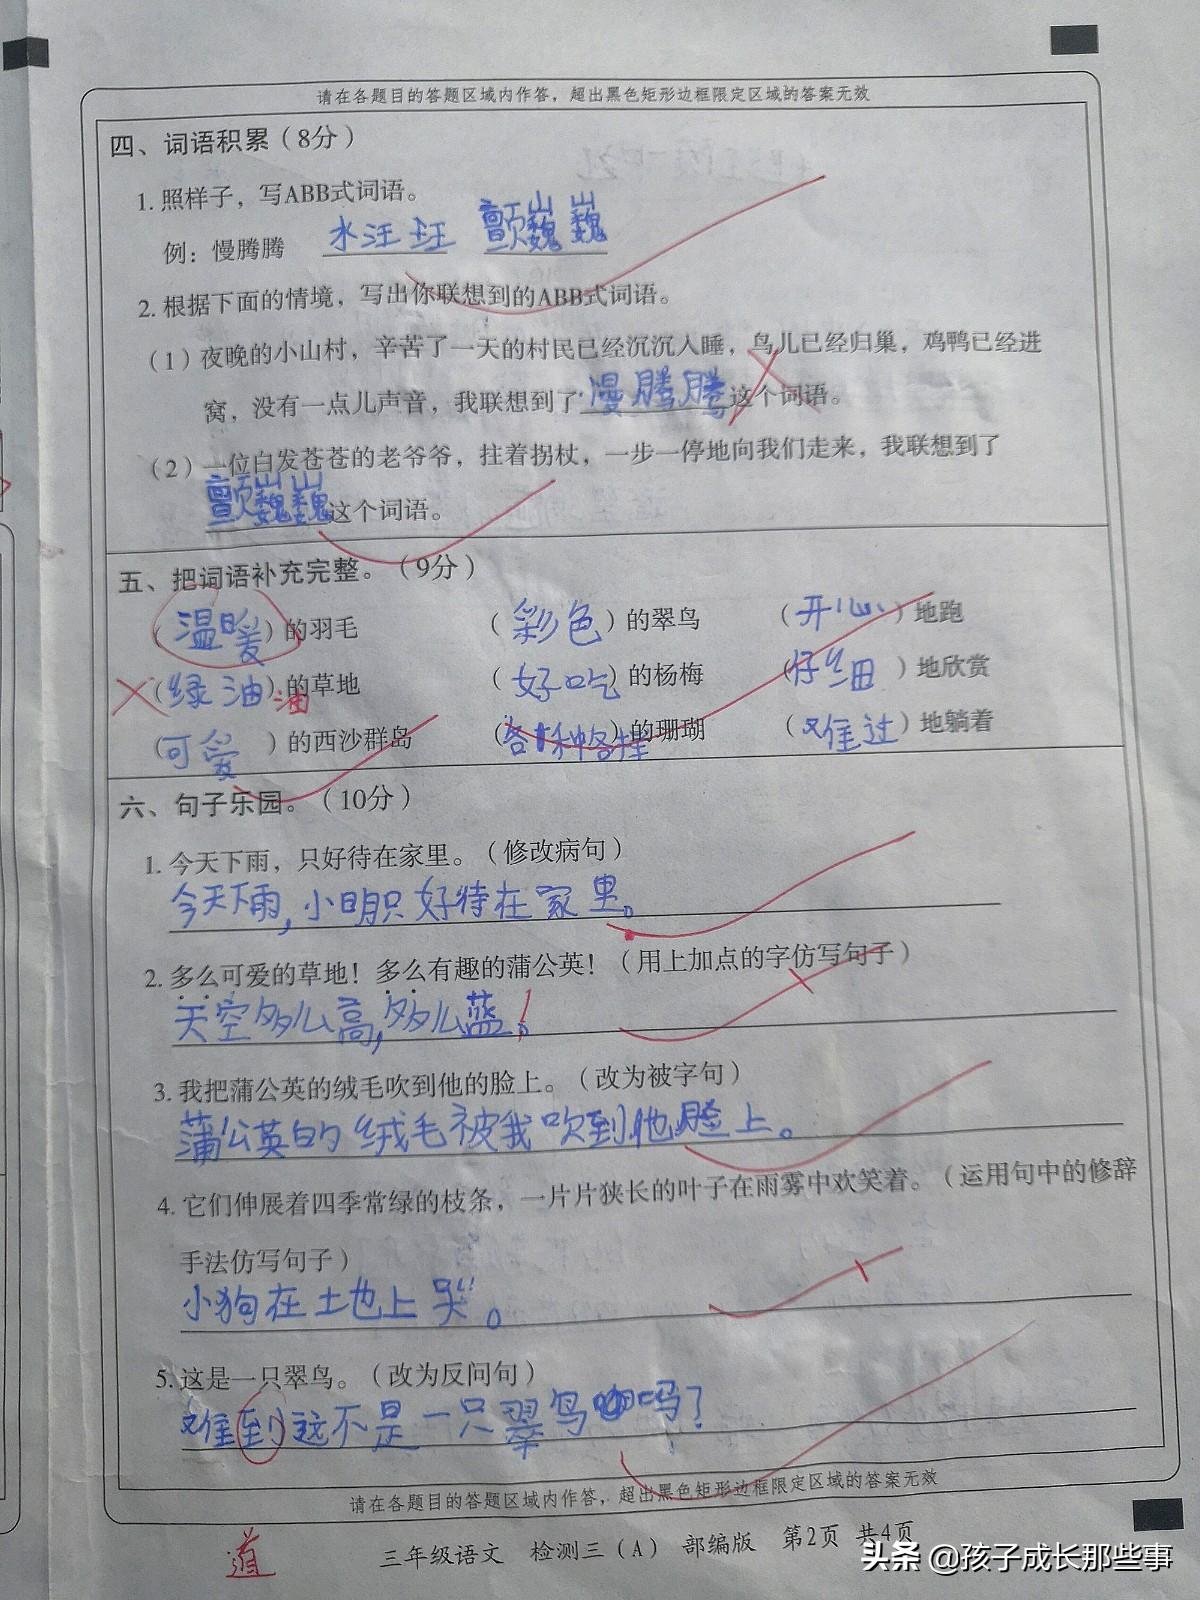 请在各题目的答题区域内作答，超出黑色矩形边框限定区域的答案无效
四、词语积累（8分）
1. 照样子，写ABB式词语。
例：慢腾腾 水汪汪 颤巍巍
2. 根据下面的情境，写出你联想到的ABB式词语。
（1）夜晚的小山村，辛苦了一天的村民已经沉沉入睡，鸟儿已经归巢，鸡鸭已经进
窝，没有一点儿声音，我联想到了慢腾腾这个词语。
（2）一位白发苍苍的老爷爷，拄着拐杖，一步一停地向我们走来，我联想到了
颤巍巍这个词语。
五、把词语补充完整。（9分）
（温暖）的羽毛 （彩色）的翠鸟 （开心）地跑
（绿油）油的草地 （好吃）的杨梅 （仔细）地欣赏
（可爱）的西沙群岛 （各种各样）的珊瑚 （难过）地躺着
六、句子乐园。（10分）
1. 今天下雨，只好待在家里。（修改病句）
今天下雨，小明只好待在家里。
2. 多么可爱的草地！多么有趣的蒲公英！（用上加点的字仿写句子）
天空多么高，多么蓝。！
3. 我把蒲公英的绒毛吹到他的脸上。（改为被字句）
蒲公英的绒毛被我吹到他脸上。
4. 它们伸展着四季常绿的枝条，一片片狭长的叶子在雨雾中欢笑着。（运用句中的修辞
手法仿写句子）
小狗在土地上哭。
5. 这是一只翠鸟。（改为反问句）
难到这不是一只翠鸟吗？
请在各题目的答题区域内作答，超出黑色矩形边框限定区域的答案无效
道
三年级语文 检测三（A） 部编版 第2页 共4页
头条 @孩子成长那些事